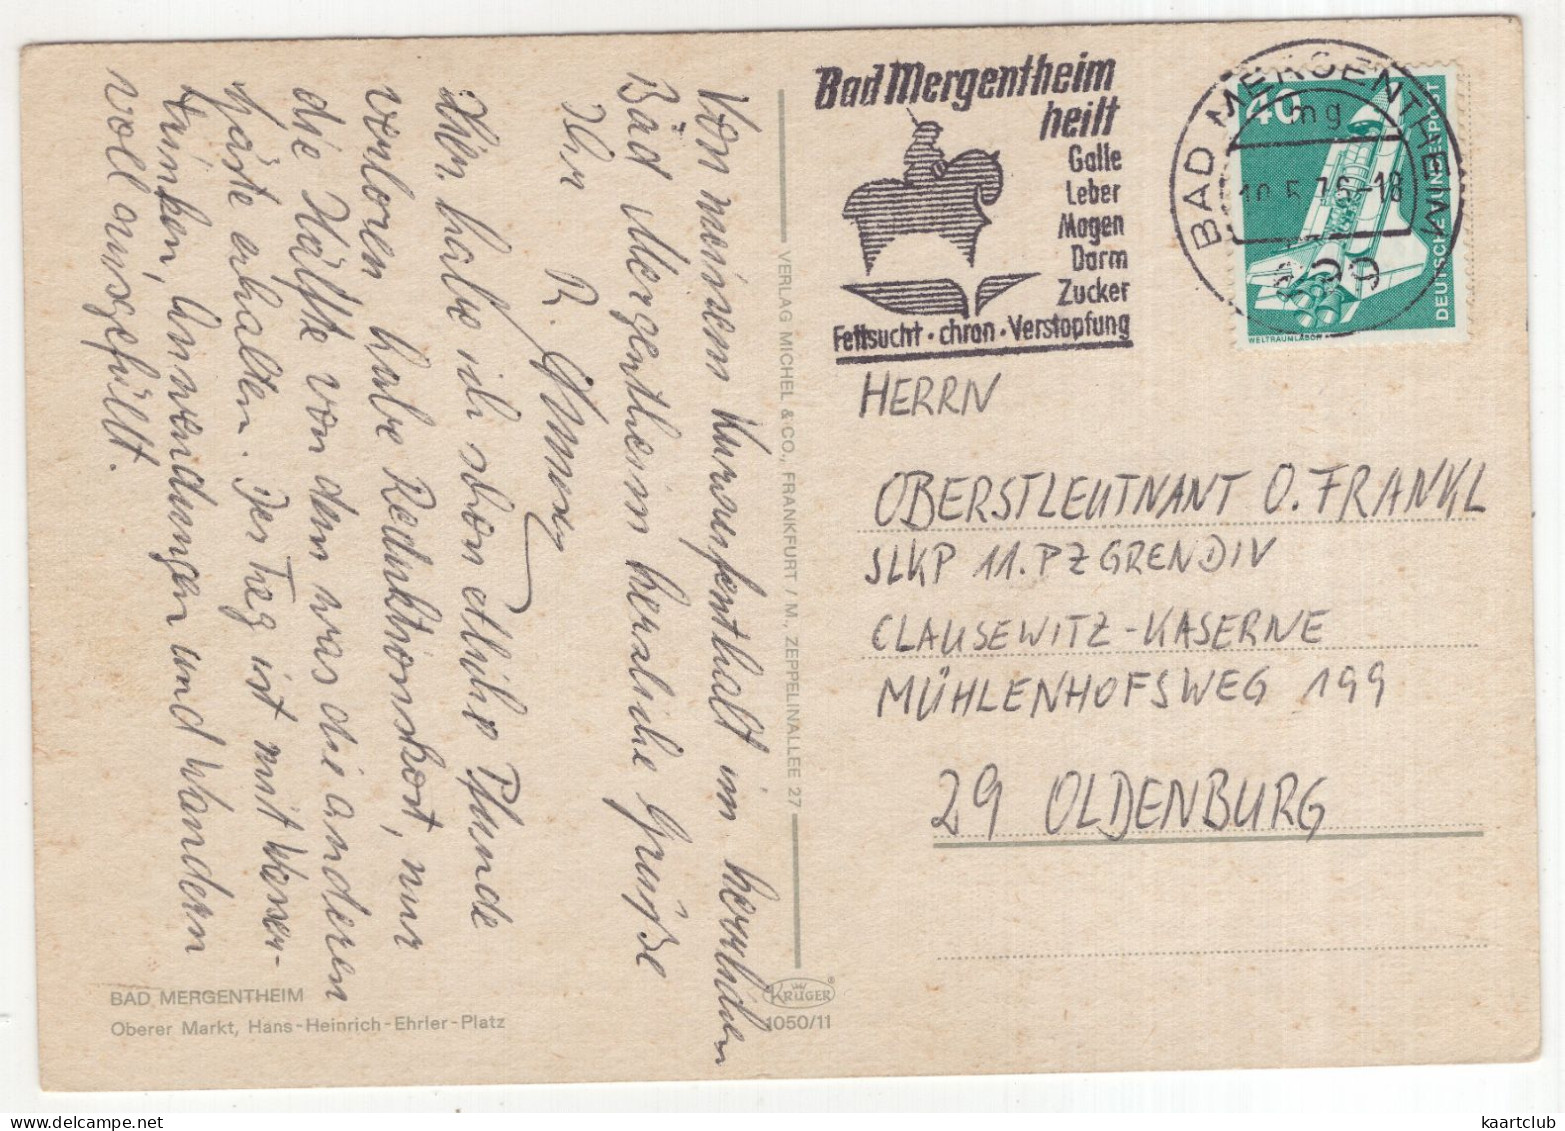 Von meinem Kuraufenthalt im herrlichen
Bad Mergentheim herzliche Grüße
Ihr R.
Hier habe ich schon etliche Pfunde
verloren, habe Reduktionskost, nur
die Hälfte von dem was die anderen
Gäste erhalten. Der Tag ist mit Wasser-
trinken, Anwendungen und Wandern
voll ausgefüllt.
BAD MERGENTHEIM
Oberer Markt, Hans-Heinrich-Ehrler-Platz
VERLAG MICHEL & CO., FRANKFURT / M., ZEPPELINALLEE 27
KRÜGER®
1050/11
Bad Mergentheim
heilt
Galle
Leber
Magen
Darm
Zucker
Fettsucht · chron · Verstopfung
BAD MERGENTHEIM
mg
10.5.76-18
6990
40
DEUTSCHE BUNDESPOST
WELTRAUMLABOR
HERRN
OBERSTLEUTNANT O. FRANKL
SLKP 11. PZGRENDIV
CLAUSEWITZ-KASERNE
MÜHLENHOFSWEG 199
29 OLDENBURG
kaartclub